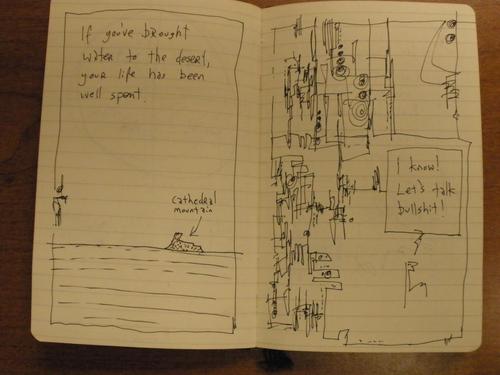 If you've brought
water to the desert,
your life has been
well spent.
cathedral
mountain
I know!
Let's talk
bullshit!